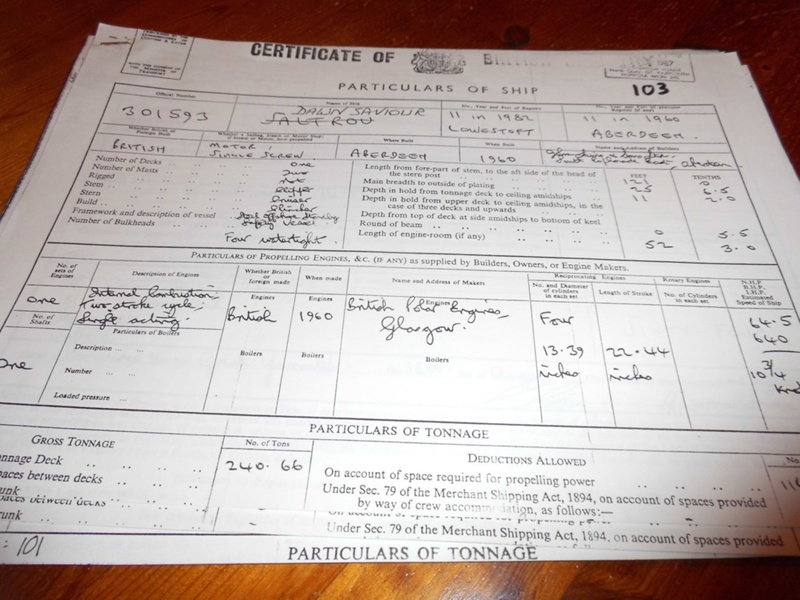 CERTIFICATE OF
PARTICULARS OF SHIP
103
Official Number
Name of Ship
No., Year and Port of Registry
301593
DAWN SAVIOUR
SALTROU
11 in 1982
LOWESTOFT
11 in 1960
ABERDEEN.
Whether British or Foreign Built
When Built
BRITISH
MOTOR,
SINGLE SCREW
Where Built
ABERDEEN
1960
Name and Address of Builders
Number of Decks
one
Number of Masts
Two
Rigged
not
Stem
Stern
cruiser
Build
Framework and description of vessel
Number of Bulkheads
Four watertight.
Length from fore-part of stem, to the aft side of the head of the stern post
Main breadth to outside of plating
Depth in hold from tonnage deck to ceiling amidships
Depth in hold from upper deck to ceiling amidships, in the case of three decks and upwards
Depth from top of deck at side amidships to bottom of keel
Round of beam
Length of engine-room (if any)
FEET
TENTHS
121
0
25
6.5
11
2.0
0
5.5
52
3.0
PARTICULARS OF PROPELLING ENGINES, &C. (IF ANY) as supplied by Builders, Owners, or Engine Makers.
No. of sets of Engines
Description of Engines
Whether British or foreign made
When made
Name and Address of Makers
Reciprocating Engines
Rotary Engines
No. and Diameter of cylinders in each set
Length of Stroke
No. of Cylinders in each set
N.H.P.
B.H.P.
I.H.P.
Estimated Speed of Ship
one
Internal Combustion
Two stroke cycle,
Single acting
Engines
British
Engines
1960
Engines
British Polar Engines,
Glasgow.
Four
64.5
640
No. of Shafts
Particulars of Boilers
Description
Boilers
Boilers
Boilers
13.39
inches
22.44
inches
10 3/4
One
Number
Loaded pressure
PARTICULARS OF TONNAGE
GROSS TONNAGE
No. of Tons
DEDUCTIONS ALLOWED
240.66
On account of space required for propelling power
Under Sec. 79 of the Merchant Shipping Act, 1894, on account of spaces provided
by way of crew accommodation, as follows:—
Under Sec. 79 of the Merchant Shipping Act, 1894, on account of spaces provided
101
PARTICULARS OF TONNAGE